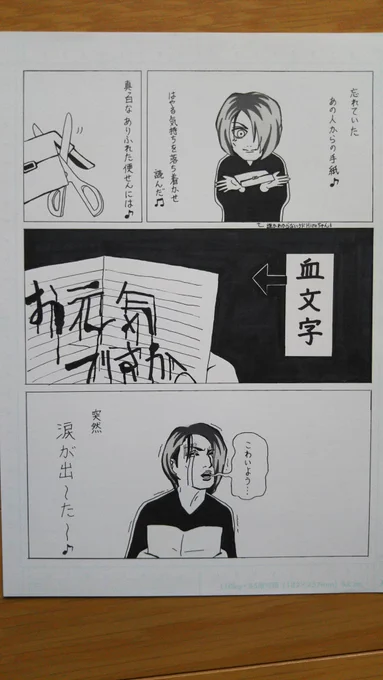 忘れていた
あの人からの手紙♪
はやる気持ちを落ち着かせ
読んだ♫
真っ白な ありふれた便せんには♪
血文字
お元気
ですか。
こわいよう…
突然
涙が出〜た〜♪